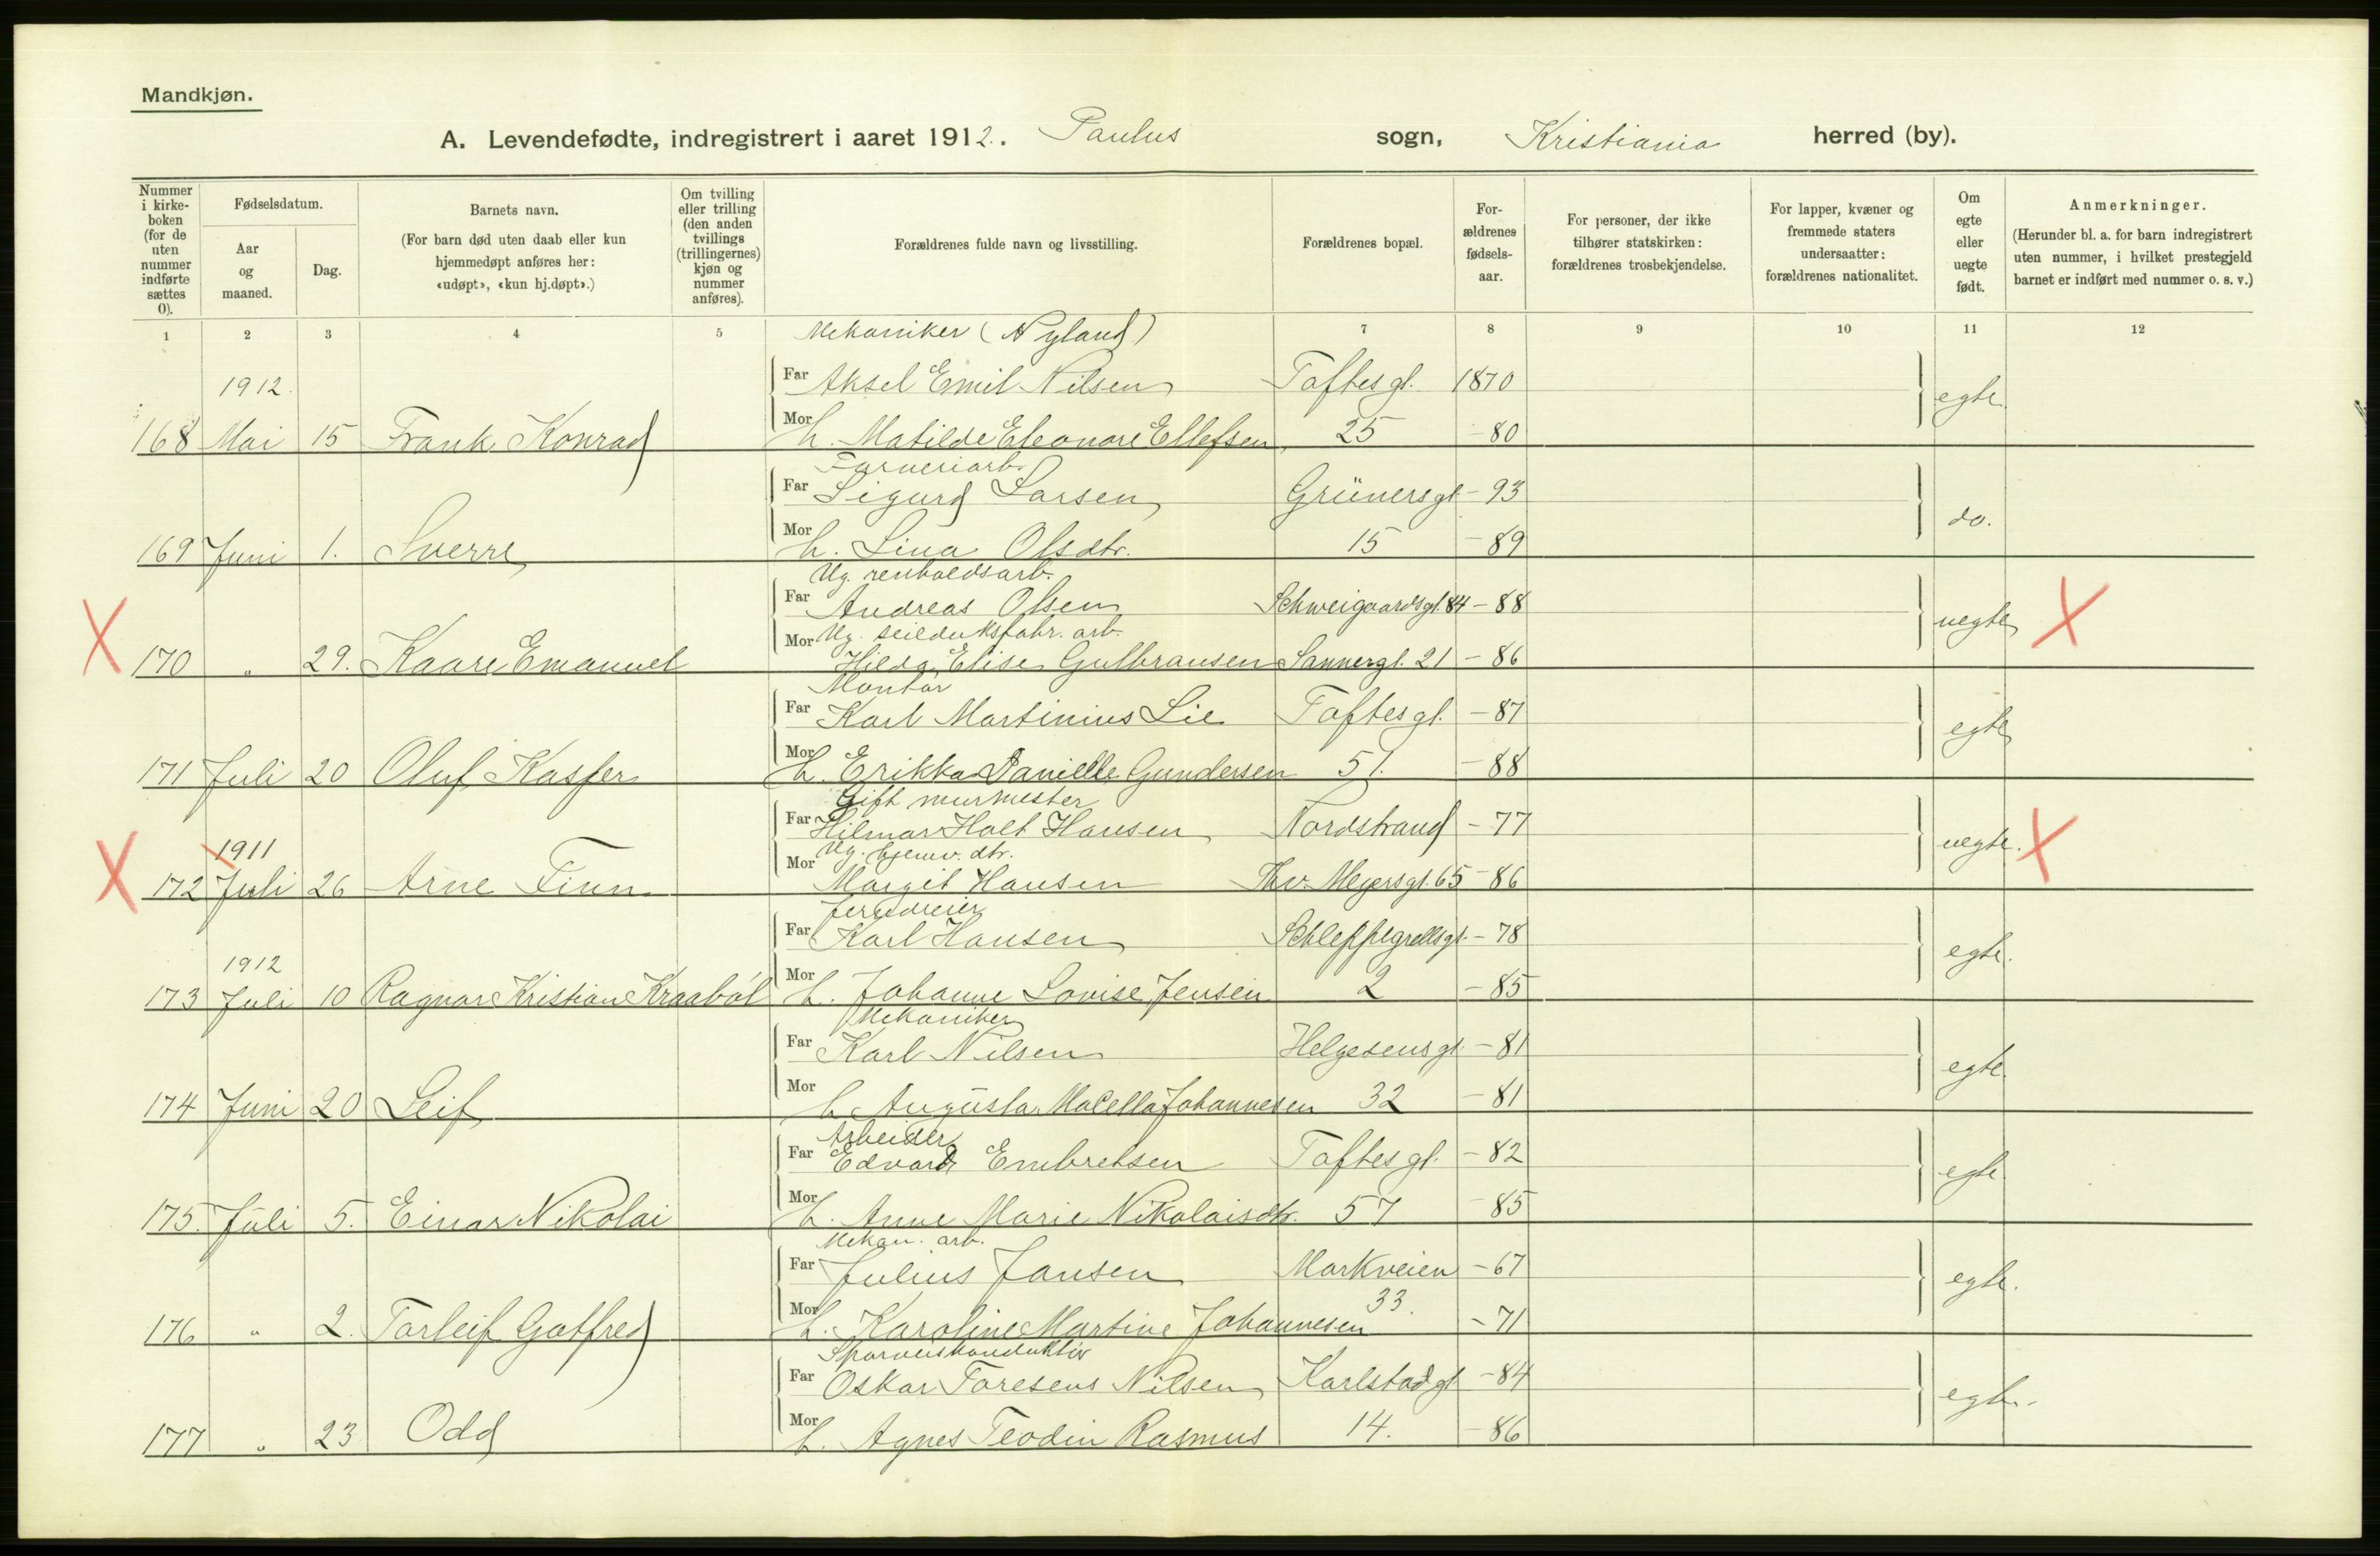 Mandkjøn.
A. Levendefødte, indregistrert i aaret 1912. Paulus sogn, Kristiania herred (by).
Nummer i kirke-boken (for de uten nummer indførte sættes 0).
Fødselsdatum.
Aar og maaned.
Dag.
Barnets navn.
(For barn død uten daab eller kun hjemmedøpt anføres her: «udøpt», «kun hj.døpt».)
Om tvilling eller trilling (den anden tvillings (trillingernes) kjøn og nummer anføres).
Forældrenes fulde navn og livsstilling.
Forældrenes bopæl.
For-ældrenes fødsels-aar.
For personer, der ikke tilhører statskirken: forældrenes trosbekjendelse.
For lapper, kvæner og fremmede staters undersaatter: forældrenes nationalitet.
Om egte eller uegte født.
Anmerkninger.
(Herunder bl. a. for barn indregistrert uten nummer, i hvilket prestegjeld barnet er indført med nummer o. s. v.)
1 2 3 4 5 7 8 9 10 11 12
Mekaniker (Nyland)
1912. Far Aksel Emil Nilsen Toftesgt. 1870 egte
168 Mai 15 Frank Konrad Mor h. Matilde Eleonore Ellefsen 25 -80
Farveriarb.
Far Sigurd Larsen Grünersgt -93 do.
169 Juni 1. Sverre Mor h. Lina Olsdtr. 15 -89
Ug. renholdsarb.
Far Andreas Olsen Schweigaardsgt. 84 -88 uegte X
Ug. seilduksfabr. arb.
X 170 " 29. Kaare Emanuel Mor Hilda Elise Gulbransen Sannergt. 21 -86
Montør
Far Karl Martinius Lie Toftesgt. -87 egte
171 Juli 20 Oluf Kasper Mor h. Erikka Danielle Gundersen 51. -88
Gift murmester
Far Hilmar Holt Hansen Nordstrand -77 uegte. X
1911 Ug. hjemv. dtr.
X 172 Juli 26 Arne Finn Mor Margit Hansen Thv. Meyersgt. 65 -86
Jerndreier
Far Karl Hansen Schleppegrellsgt. -78 egte.
1912
173 Juli 10 Ragnar Kristian Kraabøl Mor h. Johanne Lovise Jensen 2 -85
Mekaniker
Far Karl Nilsen Helgesensgt. -81 egte
174 Juni 20 Leif Mor h. Augusta Johannesen 32 -81
Arbeider
Far Edvard Embretsen Toftesgt. -82 egte
175. Juli 5. Einar Nikolai Mor h. Anne Marie Nikolaisdtr. 57 -85
Mekan. arb.
Far Julius Jansen Markveien -67 egte.
176 " 2. Torleif Gotfred Mor h. Karoline Martine Johannesen 33. -71
Sporveiskonduktør
Far Oskar Nilsen Karlstadgt -84 egte.
177 " 23 Odd Mor h. Agnes Teodin Rasmus 14. -86